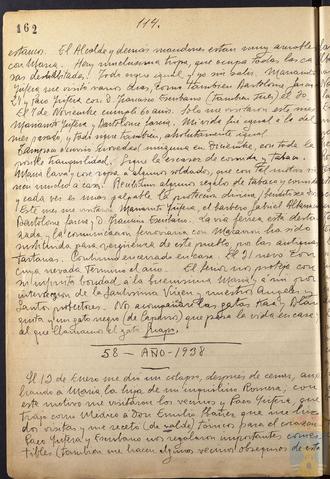 162
114.
estamos. El Alcalde y demás mandones están muy amables
con María. Hay muchísima tropa, que ocupa todas las ca
sas deshabitadas. Todo sigue igual y yo sin salir. Mariano
Yufera me visitó varios días, como también Bartolomé
21 y Paco Yufera con D. Francisco Escribano (también
El 9 de Noviembre cumplí 60 años. Solo me visitaron este mes
Mariano Yufera y Bartolomé García. Mi vida fue igual a la del
mes pasado y todo sigue también, absolutamente igual.
Tampoco ocurrió novedad ninguna en Diciembre, con toda la
posible tranquilidad. Sigue la escasez de comida y Tabaco.
María lava y cose ropa a algunos soldados, que con tal motivo
nen mucho a casa. Recibimos algunos regalos de Tabaco y comida
y cada vez es más palpable la protección divina
Este mes me visitaron Mariano Yufera, el barbero Gabriel
Bartolomé García y D. Francisco Escribano. La vía férrea está desba
ratada y la comunicación ferroviaria con Mazarrón ha sido
sustituida para vergüenza de este pueblo, por las antiguas
tartanas. Continúo encerrado en casa. El 31
cima nevada terminó el año. El Señor nos protege con
su infinita bondad, a la buenísima María y a mí por
intercesión de la Santísima Virgen, nuestros Ángeles y
Santos protectores. Nos acompañan las gatas Kaá, y Blan
quita y un gato negro (de Candros) que pasa la vida en casa
al que llamamos el gato Guapo.
58 - AÑO - 1938.
El 12 de Enero me dio un colapso, después de cenar, aux
iliando a María la hija de mi inquilino Romera; con
este motivo me visitaron los vecinos y Paco Yufera, que
trajo como Médico a Don Emilio Ibáñez que me hizo
dos visitas y me recetó (de valde) tónicos para el corazón.
Paco Yufera y Escribano nos regalaron importantes comes
tibles (también me hacen algunos vecinos obsequios de esta